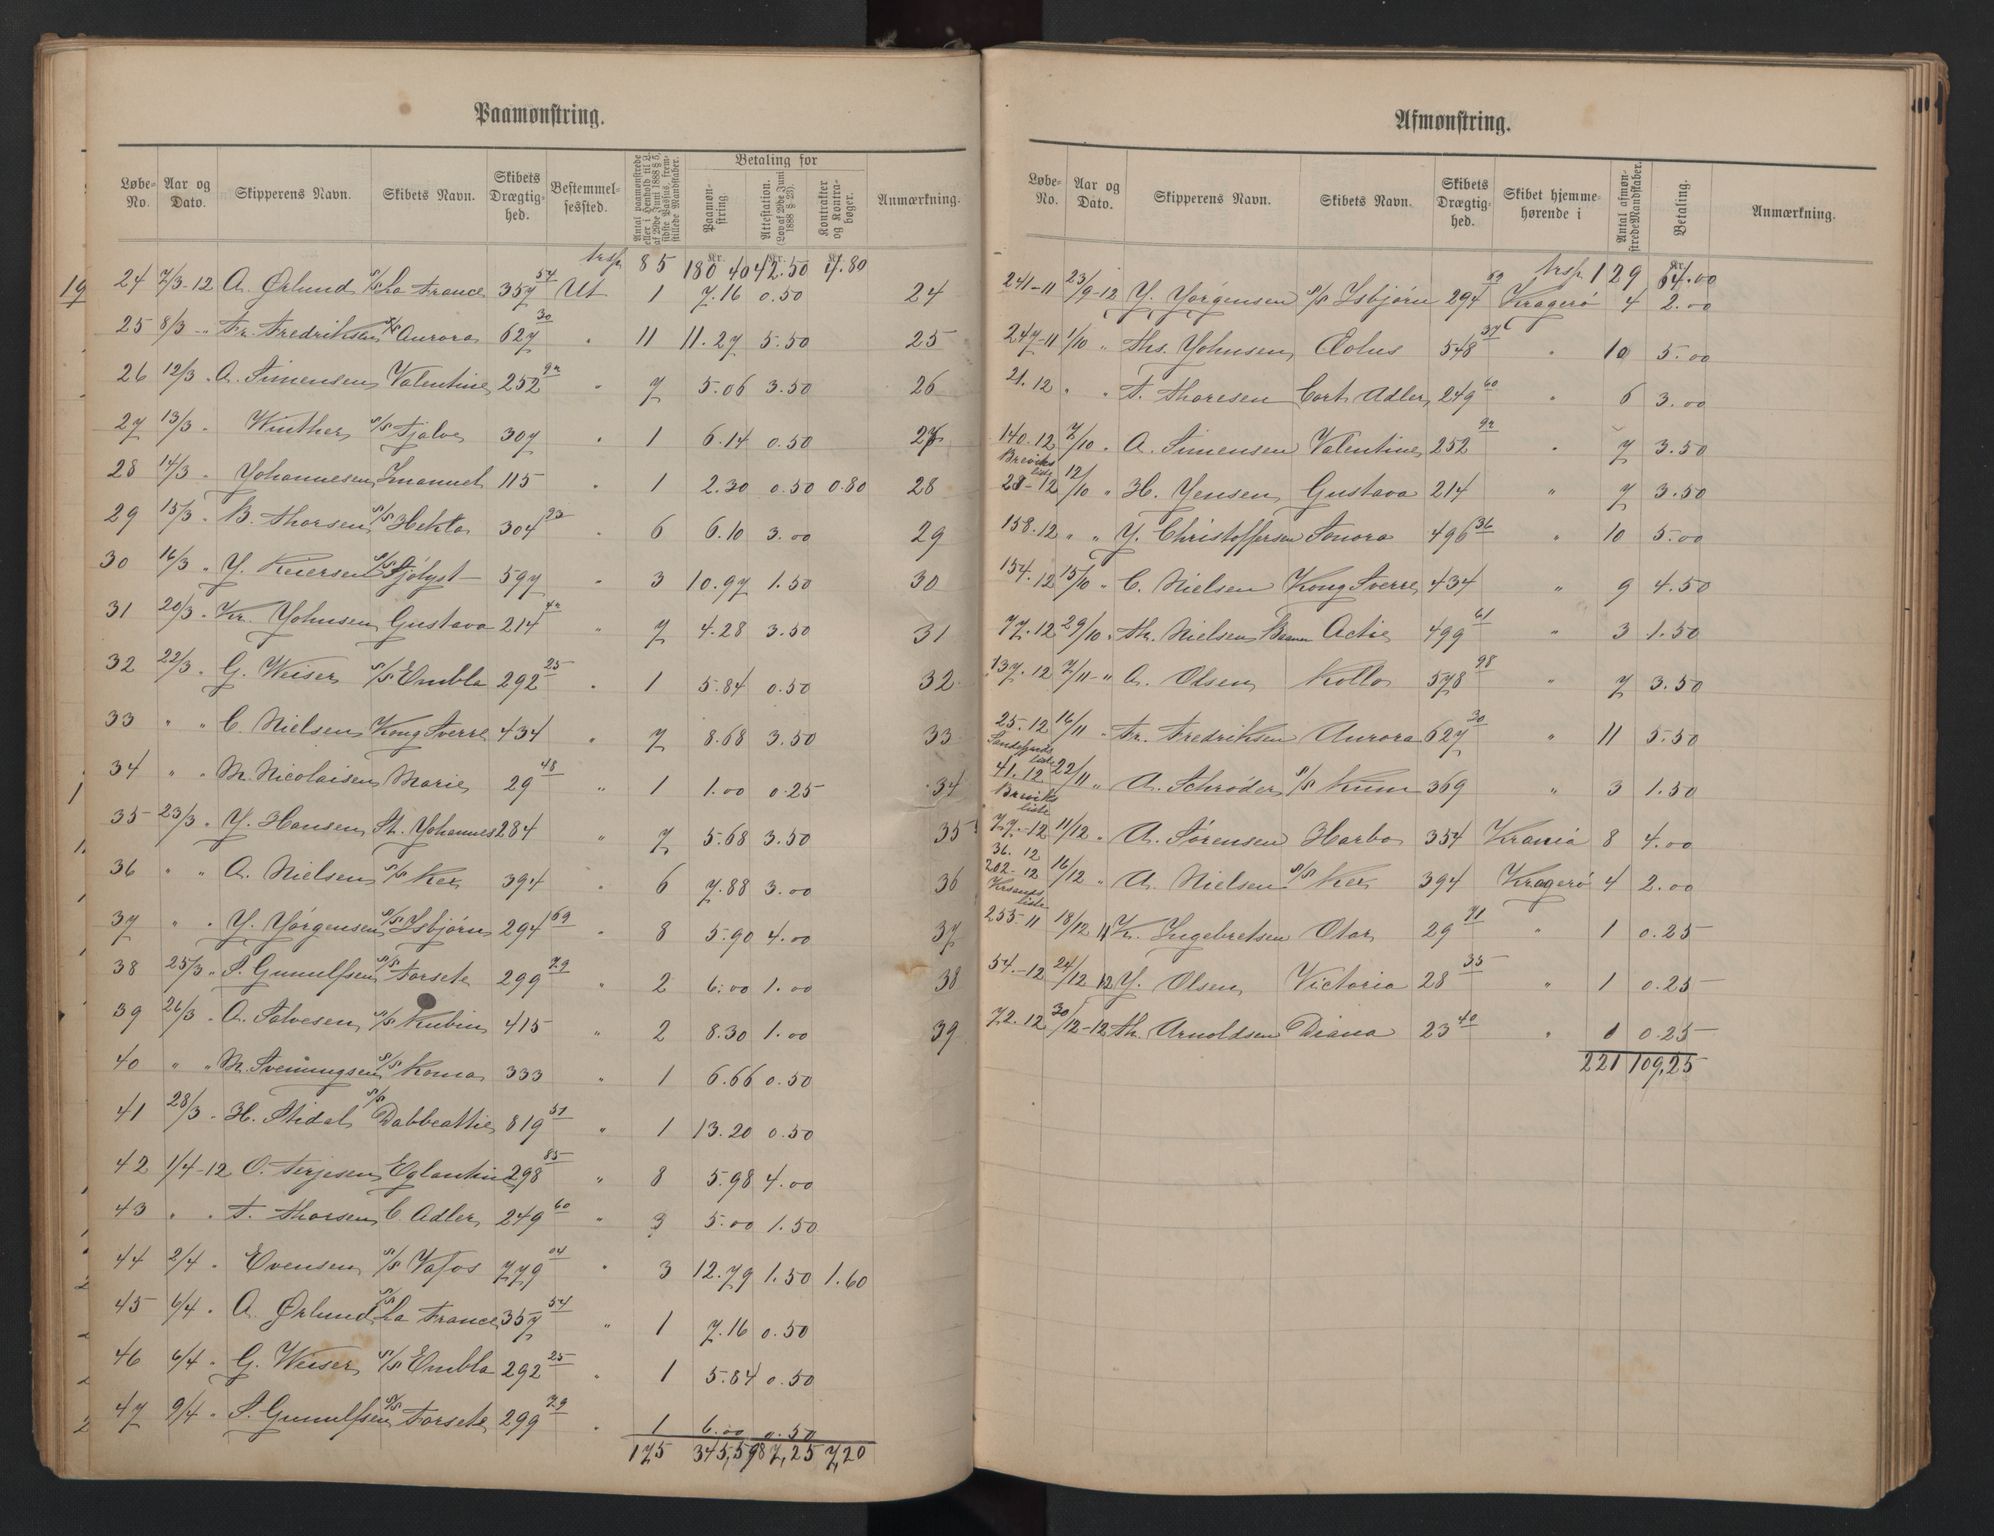 Paamønstring.
Løbe-No. Aar og Dato. Skipperens Navn. Skibets Navn. Skibets Drægtig-hed. Bestemmel-sessted. Antal paamønstrede eller i Henhold til L. af 29de Juni 1888 § 5, sidste Passus, frem-stillede Mandskaber. Betaling for Paamøn-string Attestation. (Lov af 29de Juni 1888 § 23). Kontrakter og Kontra-bøger. Anmærkning.
trsp. 85 180 40 42.50 4.80
19
24 7/3-12 A. Ørlund s/s La France 357 54 Ut 1 7.16 0.50 24
25 8/3 " Fr. Fredriksen s/s Aurora 627 30 " 11 11.27 5.50 25
26 12/3 " A. Simensen Valentine 252 92 " 7 5.06 3.50 26
27 13/3 " Winther s/s Fjalve 307 " 1 6.14 0.50 27
28 14/3 " Johannesen Imanuel 115 " 1 2.30 0.50 0.80 28
29 15/3 " B. Thorsen s/s Hekla 304 23 " 6 6.10 3.00 29
30 16/3 " J. Kiersen s/s Fjølyst 597 " 3 10.97 1.50 30
31 20/3 " Kr. Johnsen Gustava 214 42 " 7 4.28 3.50 31
32 22/3 " G. Weiser s/s Embla 292 25 " 1 5.84 0.50 32
33 " " C. Nielsen Kong Sverre 434 " 7 8.68 3.50 33
34 " " M. Nicolaisen Marie 29 48 " 1 1.00 0.25 34
35 23/3 " J. Hansen St. Johannes 284 " 7 5.68 3.50 35
36 " " A. Nielsen s/s Rex 394 " 6 7.88 3.00 36
37 " " J. Jørgensen s/s Isbjørn 294 69 " 8 5.90 4.00 37
38 25/3 " S. Gunulfsen s/s Forsete 299 79 " 2 6.00 1.00 38
39 26/3 " A. Salvesen s/s Rubin 415 " 2 8.30 1.00 39
40 " " M. Svenningsen s/s Roma 333 " 1 6.66 0.50
41 28/3 " H. Stidal s/s Dabbeattie 819 51 " 1 13.20 0.50
42 1/4-12 O. Terjesen Eglantine 298 85 " 8 5.98 4.00
43 " " T. Thorsen C. Adler 249 60 " 3 5.00 1.50
44 2/4 " Evensen s/s Vafos 779 04 " 3 12.79 1.50 1.60
45 6/4 " A. Ørlund s/s La France 357 54 " 1 7.16 0.50
46 6/4 " G. Weiser s/s Embla 292 25 " 1 5.84 0.50
47 9/4 " S. Gunulfsen s/s Forsete 299 79 " 1 6.00 0.50
175 345,59 87,25 7,20
Afmønstring.
Løbe-No. Aar og Dato. Skipperens Navn. Skibets Navn. Skibets Drægtig-hed. Skibet hjemme-hørende i Antal afmøn-strede Mandskaber. Betaling. Anmærkning.
trsp. 129 64.00
241-11 23/9-12 J. Jørgensen s/s Isbjørn 294 69 Kragerø 4 2.00
247-11 1/10 " Ths. Johnsen Æolus 548 37 " 10 5.00
21.12 " " T. Thoresen Cort Adler 249 60 " 6 3.00
140.12 7/10 " A. Simensen Valentine 252 92 " 7 3.50
Breviks liste
28-12 12/10 " H. Jensen Gustava 214 " 7 3.50
158.12 " " J. Christoffersen Sonora 496 36 " 10 5.00
154.12 15/10 " C. Nielsen Kong Sverre 434 " 9 4.50
77.12 29/10 " Th. Nielsen Baann Actie 499 61 " 3 1.50
137.12 7/11 - " A. Olsen Rollo 578 98 " 7 3.50
25.12 16/11 " Fr. Fredriksen Aurora 627 30 " 11 5.50
Sandefjords liste
41.12 22/11 " A. Schrøder s/s Kum 369 " 3 1.50
Breviks liste
77.-12 11/12 " A. Sørensen Harbo 354 Krania 8 4.00
36.12
202-12 16/12 " A. Nielsen s/s Rex 394 Kragerø 4 2.00
Krsands liste
255-11 18/12 11 K. Ingebretsen Otar 29 71 " 1 0.25
54.-12 24/12 12 J. Olsen Victoria 28 35 " 1 0.25
72.12 30/12-12 Th. Arnoldsen Diana 23 40 " 1 0.25
221 109,25